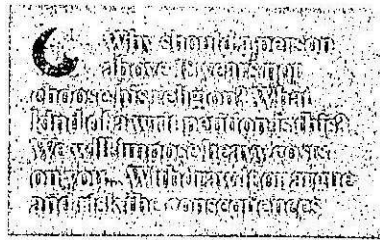 Why should a person
above 18 years not
choose his religion? What
kind of a writ petition is this?
We will impose heavy costs
on you... Withdraw it or argue
and risk the consequences